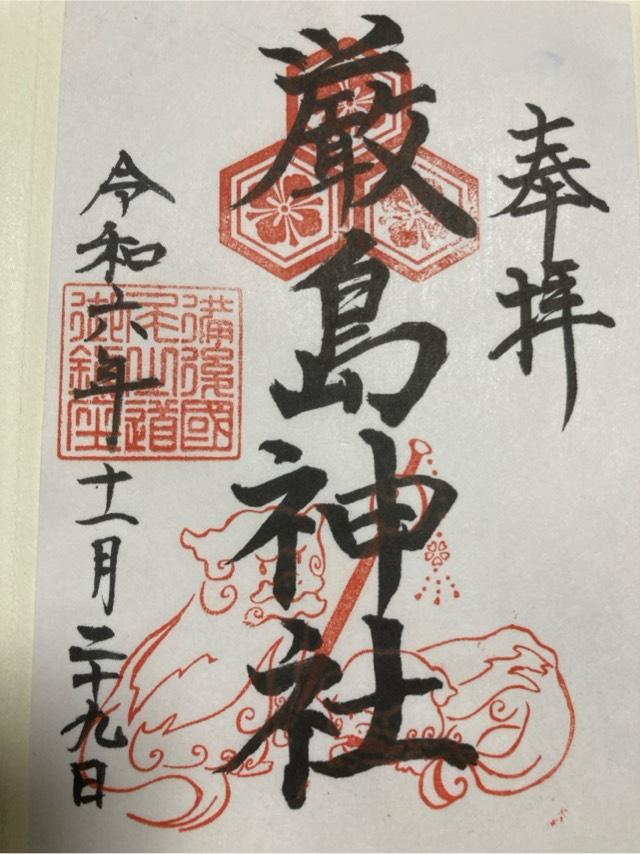 奉拝
厳島神社
備後國
尾道
御鎮座
令和六年十一月二十九日